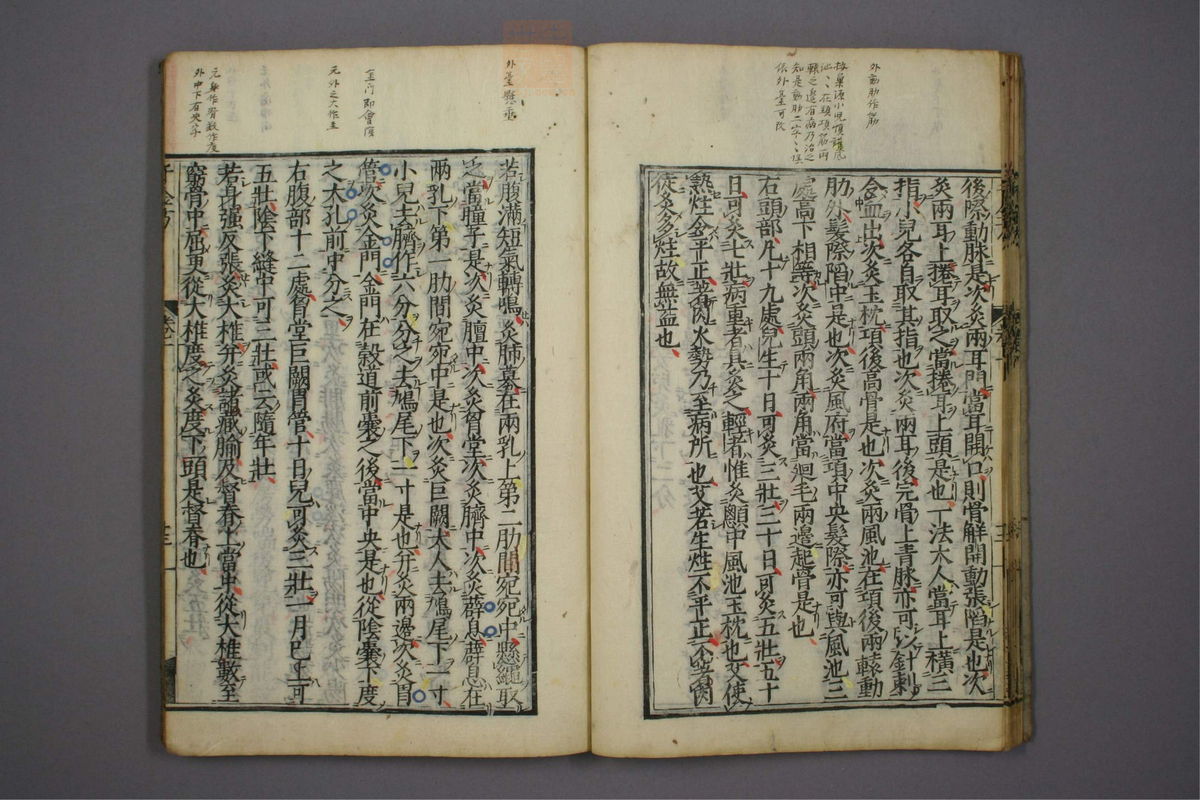 外動肋作筋
後際動脉是次灸兩耳門當耳開口則骨解開動張陷是也次
灸兩耳上捲耳取之當捲耳上頭是也一法大人當耳上橫三
指小兒各自取其指也次灸兩耳後完骨上青脉亦可以針刺
令血出次灸玉枕項後高骨是也次灸兩風池在項後兩轅動
肋外髮際陷中是也次灸風府當項中央髮際亦可與風池三
處高下相等次灸頭兩角兩角當迴毛兩邊起骨是也
右頭部凡十九處兒生十日可灸三壯三十日可灸五壯五十
日可灸七壯病重者具灸之輕者惟灸顖中風池玉枕也艾使
熟炷令平正著肉火勢乃至病所也艾若生炷不平正不著肉
徒灸多炷故無益也
外臺懸垂
金門即會陰
元外之大作至
若腹滿短氣轉鳴灸肺募在兩乳上第二肋間宛宛中懸繩取
之當瞳子是次灸膻中次灸胷堂次灸臍中次灸薜息薜息在
兩乳下第一肋間宛宛中是也次灸巨闕大人去鳩尾下一寸
小兒去臍作六分分之去鳩尾下一寸是也并灸兩邊次灸胃
管次灸金門金門在穀道前囊之後當中央是也從陰囊下度
之大孔前中分之
右腹部十二處胷堂巨闕胃管十日兒可灸三壯一月已上可
五壯陰下縫中可三壯或云隨年壯
若身強反張灸大椎并灸諸藏腧及督脊上當中從大椎數至
窮骨中屈更從大椎度之灸度下頭是督脊也